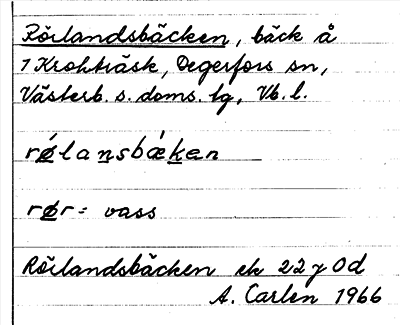 Rörlandsbäcken, bäck å
1 Krokträsk, Degerfors sn,
Västerb. s. doms. tg, Vb. l.
rǿlansbæ̀ken
rør = vass
Rörlandsbäcken ek 22 7 0d
A. Carlén 1966